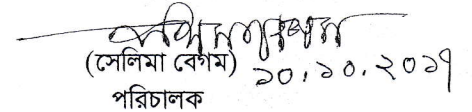 (সেলিমা বেগম) ১০.১০.২০১৭
পরিচালক